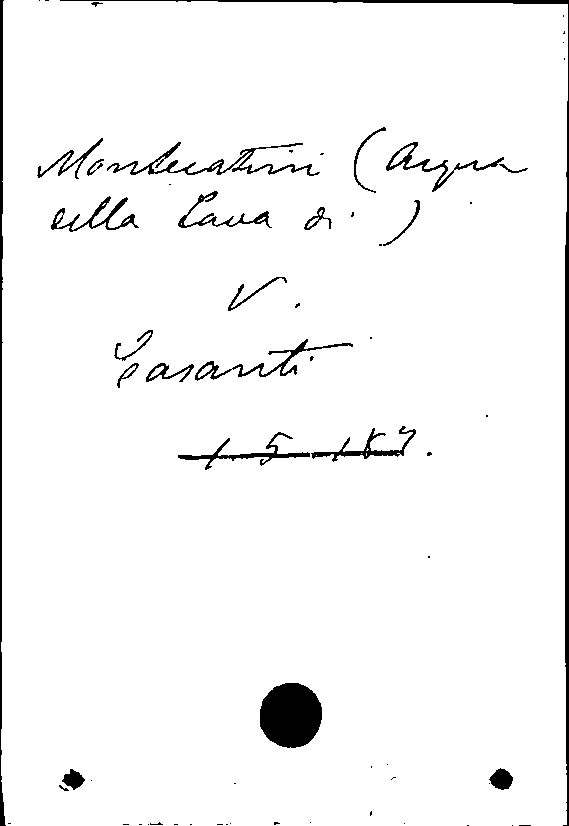 Montecatini (Acqua
della Lava di.)
V.
Casanti
1.5.187.